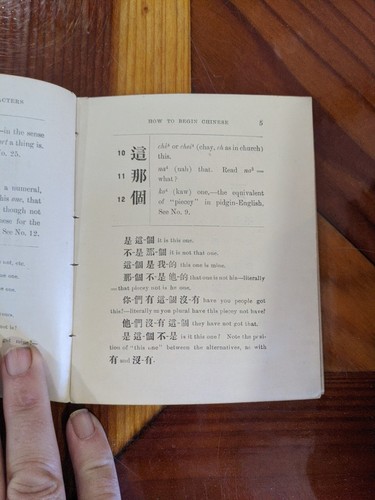 ACTERS
—in the sense
a thing is,
No. 25.
a numeral,
this one, that
though not
ense for the
See No. 12.
HOW TO BEGIN CHINESE 5
10 這 chê⁴ or chei⁴ (chay, ch as in church)
this.
11 那 na⁴ (nah) that. Read na³ —
what?
12 個 ko⁴ (kaw) one,—the equivalent
of "piecey" in pidgin-English.
See No. 9.
是 這-個 it is this one.
不-是 那-個 it is not that one.
這-個 是 我-的 this one is mine.
那-個 不-是 他-的 that one is not his—literally
—that piecey not is he one.
你-們 有 這-個 沒-有 have you people got
this?—literally you plural have this piecey not have?
他-們 沒-有 這-個 they have not got that.
是 這-個 不-是 is it this one? Note the posi-
tion of "this one" between the alternatives, as with
有 and 沒-有.